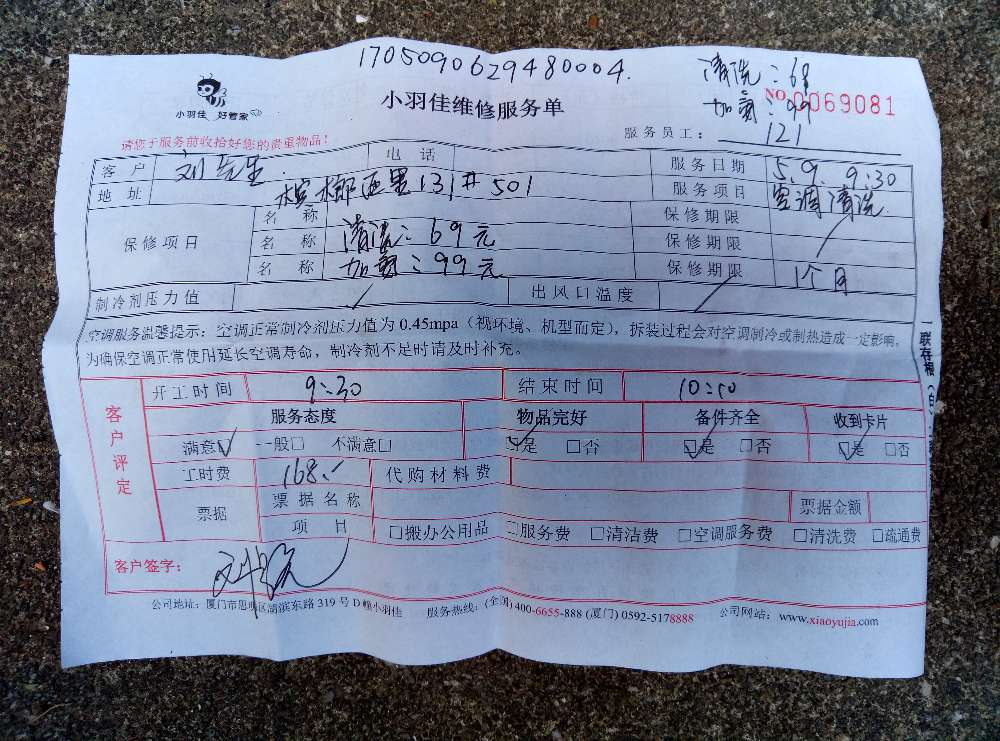 1705090629480004.
清洗：68
加氟：99
小羽佳 好管家
小羽佳维修服务单
NO.0069081
服务员工：121
请您于服务前收拾好您的贵重物品！
客户 刘先生 电话 服务日期 5.9. 9:30
地址 槟榔西里131#501 服务项目 空调清洗
保修项目
名称 保修期限
名称 清洗：69元 保修期限
名称 加氟：99元 保修期限 1个月
制冷剂压力值 出风口温度
空调服务温馨提示：空调正常制冷剂压力值为0.45mpa（视环境、机型而定），拆装过程会对空调制冷或制热造成一定影响。
为确保空调正常使用延长空调寿命，制冷剂不足时请及时补充。
一联存根（白）
客户评定
开工时间 9:30 结束时间 10:10
服务态度 物品完好 备件齐全 收到卡片
满意☑ 一般□ 不满意□ ☑是 □否 ☑是 □否 ☑是 □否
工时费 168.- 代购材料费
票据 票据名称 票据金额
项目 □搬办公用品 □服务费 □清洁费 □空调服务费 □清洗费 □疏通费
客户签字：
公司地址：厦门市思明区湖滨东路319号D幢小羽佳 服务热线：(全国)400-6655-888 (厦门) 0592-5178888 公司网站：www.xiaoyujia.com